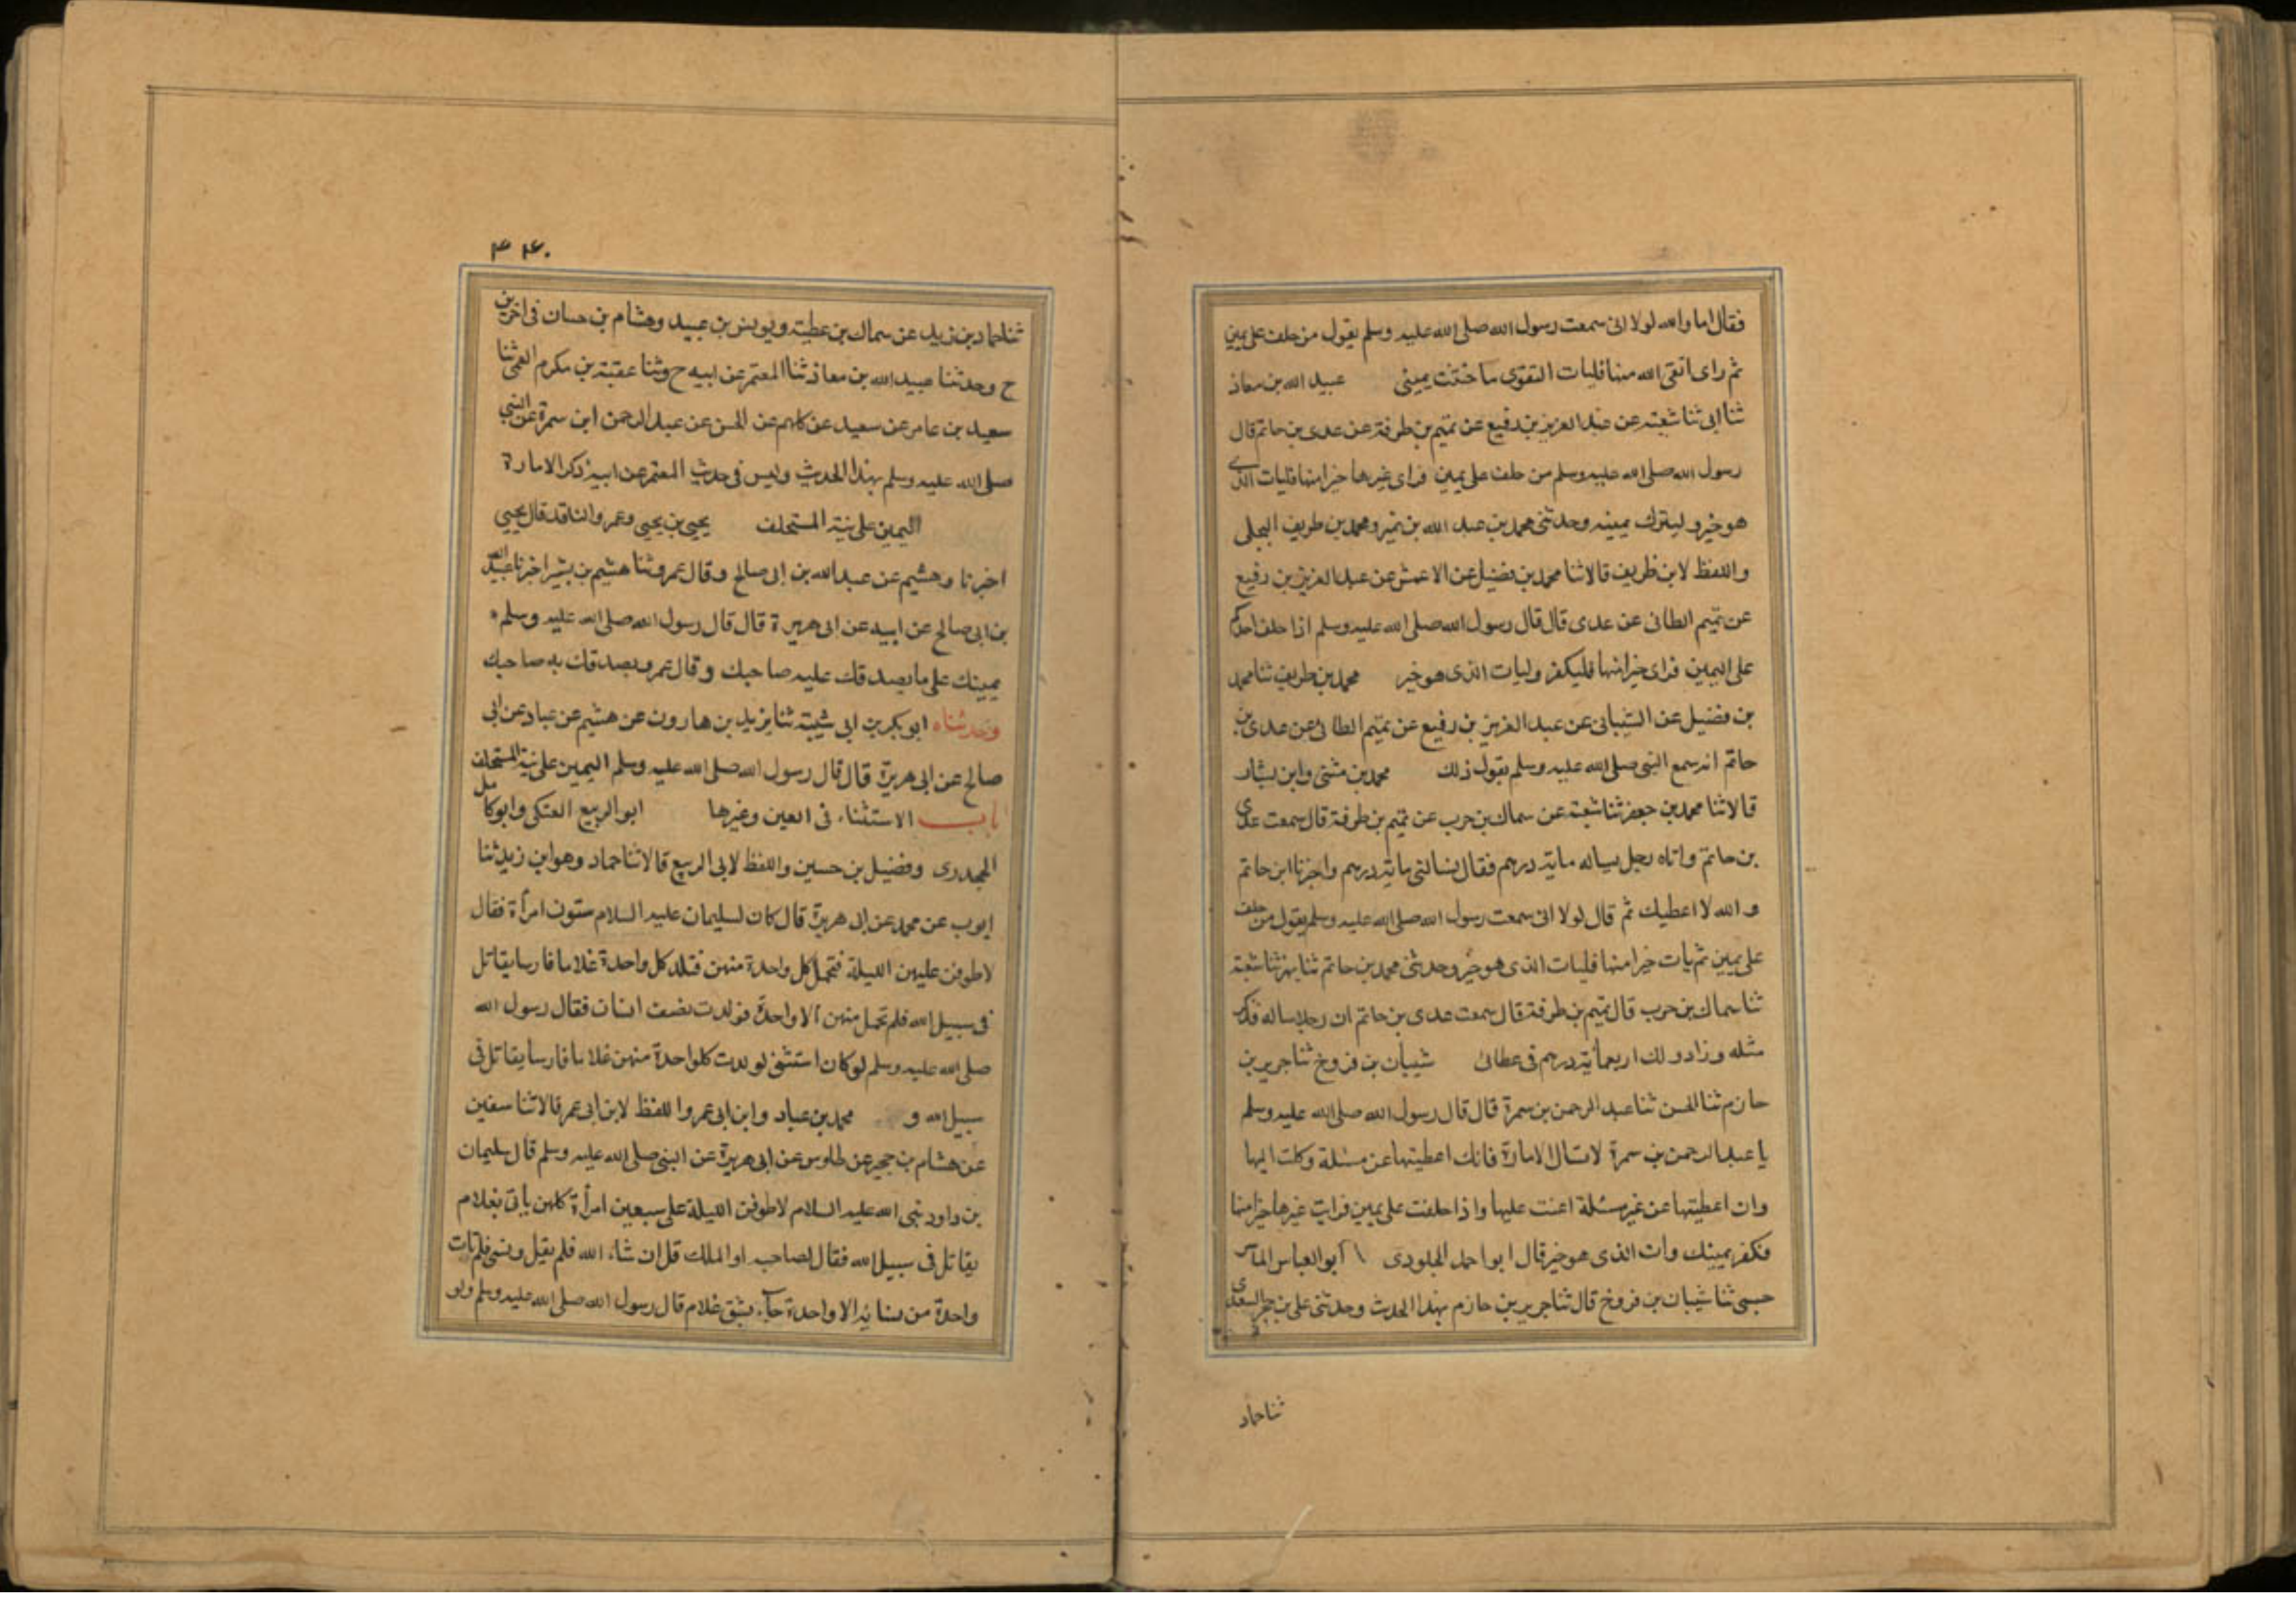 فقال اما والله لولا انى سمعت رسول الله صلى الله عليه وسلم يقول من حلف على يمين
ثم راى اتقى الله منها فليات التقوى ما حنثت يمينى عبيد الله بن معاذ
ثنا ابى ثنا شعبة عن عبد العزيز بن رفيع عن تميم بن طرفة عن عدى بن حاتم قال
رسول الله صلى الله عليه وسلم من حلف على يمين فراى غيرها خيرا منها فليات الذى
هو خير وليترك يمينه وحدثنى محمد بن عبد الله بن نمير ومحمد بن طريف البجلى
واللفظ لابن طريف قالا ثنا محمد بن فضيل عن الاعمش عن عبد العزيز بن رفيع
عن تميم الطائى عن عدى قال قال رسول الله صلى الله عليه وسلم اذا حلف احدكم
على اليمين فراى خيرا منها فليكفر وليات الذى هو خير محمد بن طريف ثنا محمد
بن فضيل عن الشيبانى عن عبد العزيز بن رفيع عن تميم الطائى عن عدى بن
حاتم انه سمع النبى صلى الله عليه وسلم يقول ذلك محمد بن مثنى وابن بشار
قالا ثنا محمد بن جعفر ثنا شعبة عن سماك بن حرب عن تميم بن طرفة قال سمعت عدى
بن حاتم واتاه رجل يساله ماية درهم فقال تسالنى ماية درهم واخبرنا ابن حاتم
والله لا اعطيك ثم قال لولا انى سمعت رسول الله صلى الله عليه وسلم يقول من حلف
على يمين ثم يات خيرا منها فليات الذى هو خير وحدثنى محمد بن حاتم ثنا بهز ثنا شعبة
ثنا سماك بن حرب قال تميم بن طرفة قال سمعت عدى بن حاتم ان رجلا ساله فذكر
مثله وزاد ولك اربعماية درهم فى عطائى شيبان بن فروخ ثنا جرير بن
حازم ثنا الحسن ثنا عبد الرحمن بن سمرة قال قال رسول الله صلى الله عليه وسلم
يا عبد الرحمن بن سمرة لا تسال الامارة فانك اعطيتها عن مسئلة وكلت اليها
وان اعطيتها عن غير مسئلة اعنت عليها واذا حلفت على يمين فرايت غيرها خيرا منها
فكفر يمينك وات الذى هو خير قال ابو احمد الجلودى ابو العباس الماسر
جسى ثنا شيبان بن فروخ قال ثنا جرير بن حازم بهذا الحديث وحدثنى على بن حجر السعدى
ثنا حماد
۴۴۰
ثنا حماد بن زيد عن سماك بن عطية ويونس بن عبيد وهشام بن حسان فى اخرين
ح وحدثنا عبيد الله بن معاذ ثنا المعتمر عن ابيه ح وثنا عقبة بن مكرم العمى ثنا
سعيد بن عامر عن سعيد عن كلهم عن الحسن عن عبد الرحمن ابن سمرة عن النبى
صلى الله عليه وسلم بهذا الحديث وليس فى حديث المعتمر عن ابيه ذكر الامارة
اليمين على نية المستحلف يحيى بن يحيى وعمرو الناقد قال يحيى
اخبرنا وهشيم عن عبد الله بن ابى صالح وقال عمرو ثنا هشيم بن بشير اخبرنا عبد الله
بن ابى صالح عن ابيه عن ابى هريرة قال قال رسول الله صلى الله عليه وسلم
يمينك على ما يصدقك عليه صاحبك وقال عمرو يصدقك به صاحبك
وحدثناه ابو بكر بن ابى شيبة ثنا يزيد بن هارون عن هشيم عن عباد عن ابى
صالح عن ابى هريرة قال قال رسول الله صلى الله عليه وسلم اليمين على نية المستحلف
باب الاستثناء فى اليمين وغيرها ابو الربيع العتكى وابو كامل
الجحدرى وفضيل بن حسين واللفظ لابى الربيع قالا ثنا حماد وهو ابن زيد ثنا
ايوب عن محمد عن ابى هريرة قال كان لسليمان عليه السلام ستون امرأة فقال
لاطوفن عليهن الليلة فتحمل كل واحدة منهن فتلد كل واحدة غلاما فارسا يقاتل
فى سبيل الله فلم تحمل منهن الا واحدة فولدت نصف انسان فقال رسول الله
صلى الله عليه وسلم لو كان استثنى لولدت كلواحدة منهن غلاما فارسا يقاتل فى
سبيل الله و محمد بن عباد وابن ابى عمر واللفظ لابن ابى عمر قالا ثنا سفين
عن هشام بن حجير عن طاوس عن ابى هريرة عن النبى صلى الله عليه وسلم قال سليمان
بن داود نبى الله عليه السلام لاطوفن الليلة على سبعين امرأة كلهن يأتى بغلام
يقاتل فى سبيل الله فقال لصاحبه او الملك قل ان شاء الله فلم يقل ونسى فلم تات
واحدة من نسائه الا واحدة جاءت بشق غلام قال رسول الله صلى الله عليه وسلم ولو